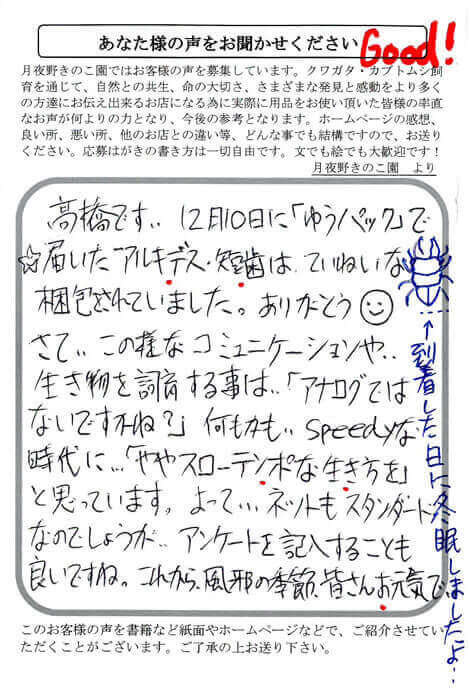 あなた様の声をお聞かせください
Good!
月夜野きのこ園ではお客様の声を募集しています。クワガタ・カブトムシ飼
育を通じて、自然との共生、命の大切さ、さまざまな発見と感動をより多く
の方達にお伝え出来るお店になる為に実際に用品をお使い頂いた皆様の率直
なお声が何よりの力となり、今後の参考となります。ホームページの感想、
良い所、悪い所、他のお店との違い等、どんな事でも結構ですので、お送り
ください。応募はがきの書き方は一切自由です。文でも絵でも大歓迎です！
月夜野きのこ園　より
高橋です‥ 12月10日に「ゆうパック」で
☆届いた アルキデス・短歯は‥ていねいな
梱包されていました。ありがとう
さて‥この様なコミュニケーションや‥
生き物を飼育する事は‥「アナログでは
ないですかね？」何もかも‥speedyな
時代に…「ややスローテンポな生き方を」
と思っています。よって…ネットもスタンダード
なのでしょうが‥アンケートを記入することも
良いですね。これから、風邪の季節、皆さんお元気で
←到着した日に冬眠しましたよ‥
このお客様の声を書籍など紙面やホームページなどで、ご紹介させてい
ただくことがございます。ご了承の上お送り下さい。